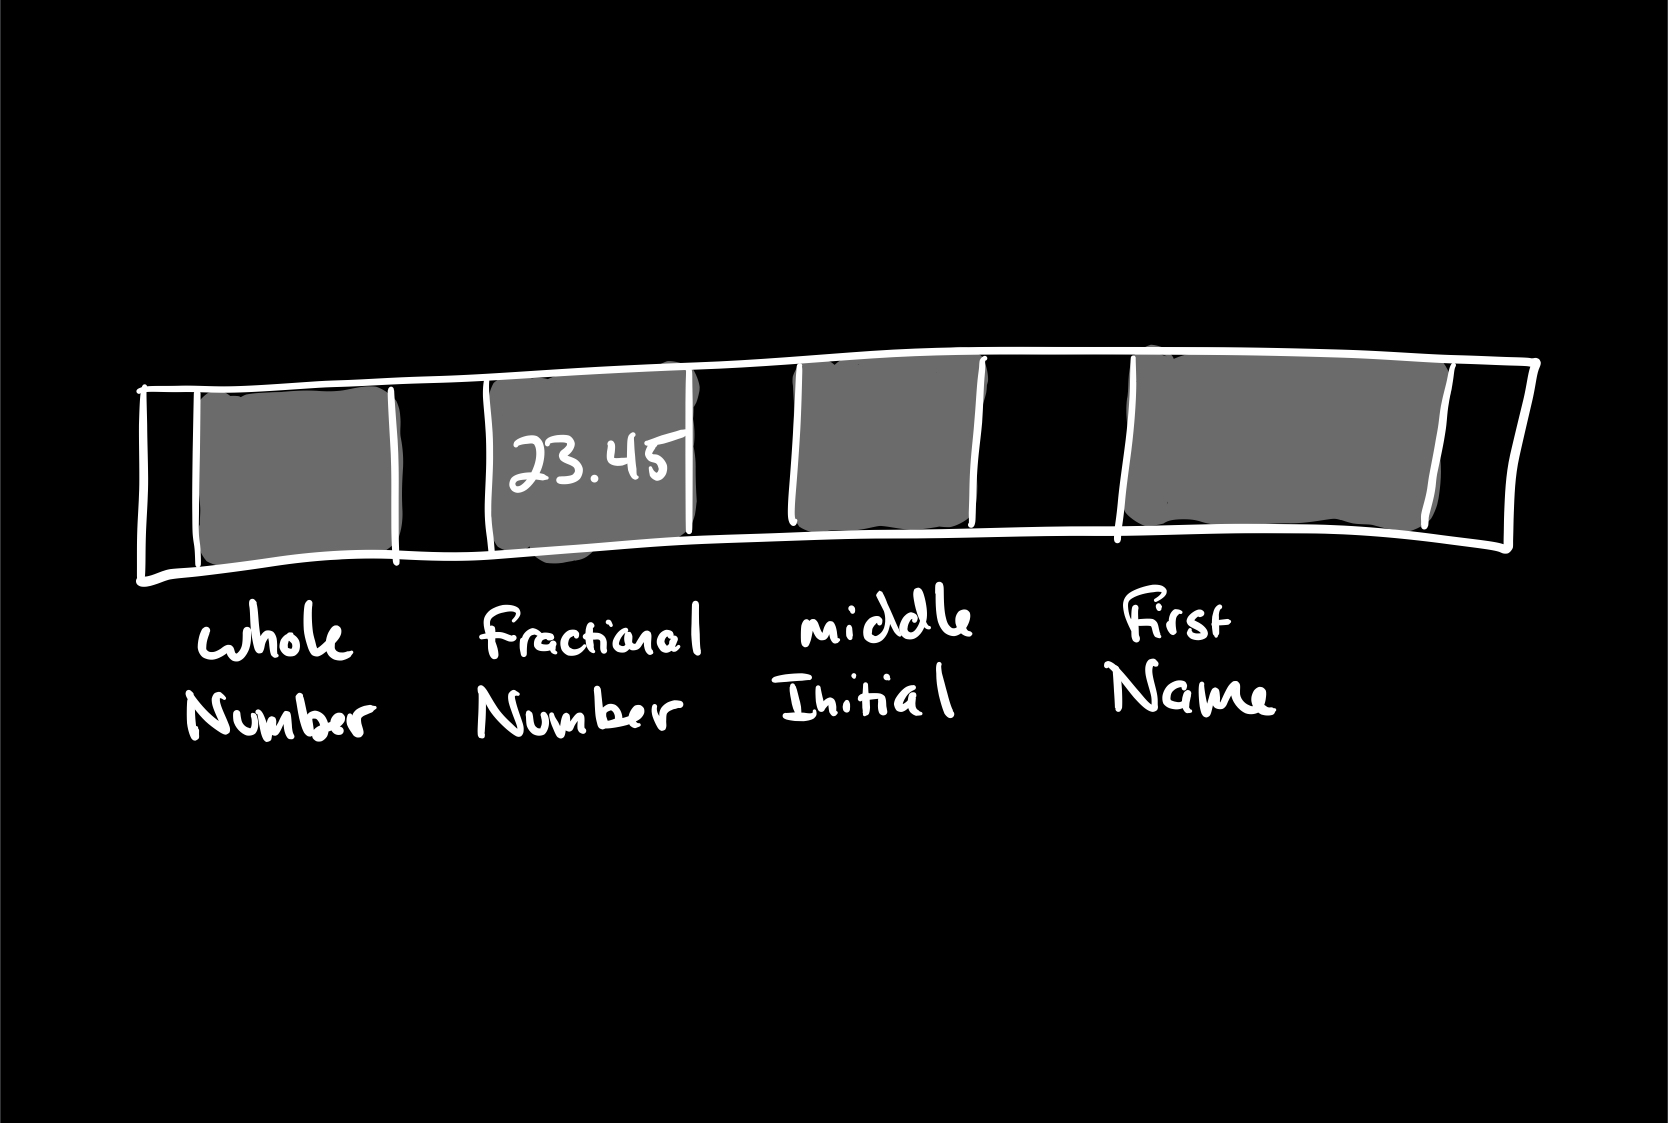 23.45
Whole
Number
Fractional
Number
middle
Initial
First
Name